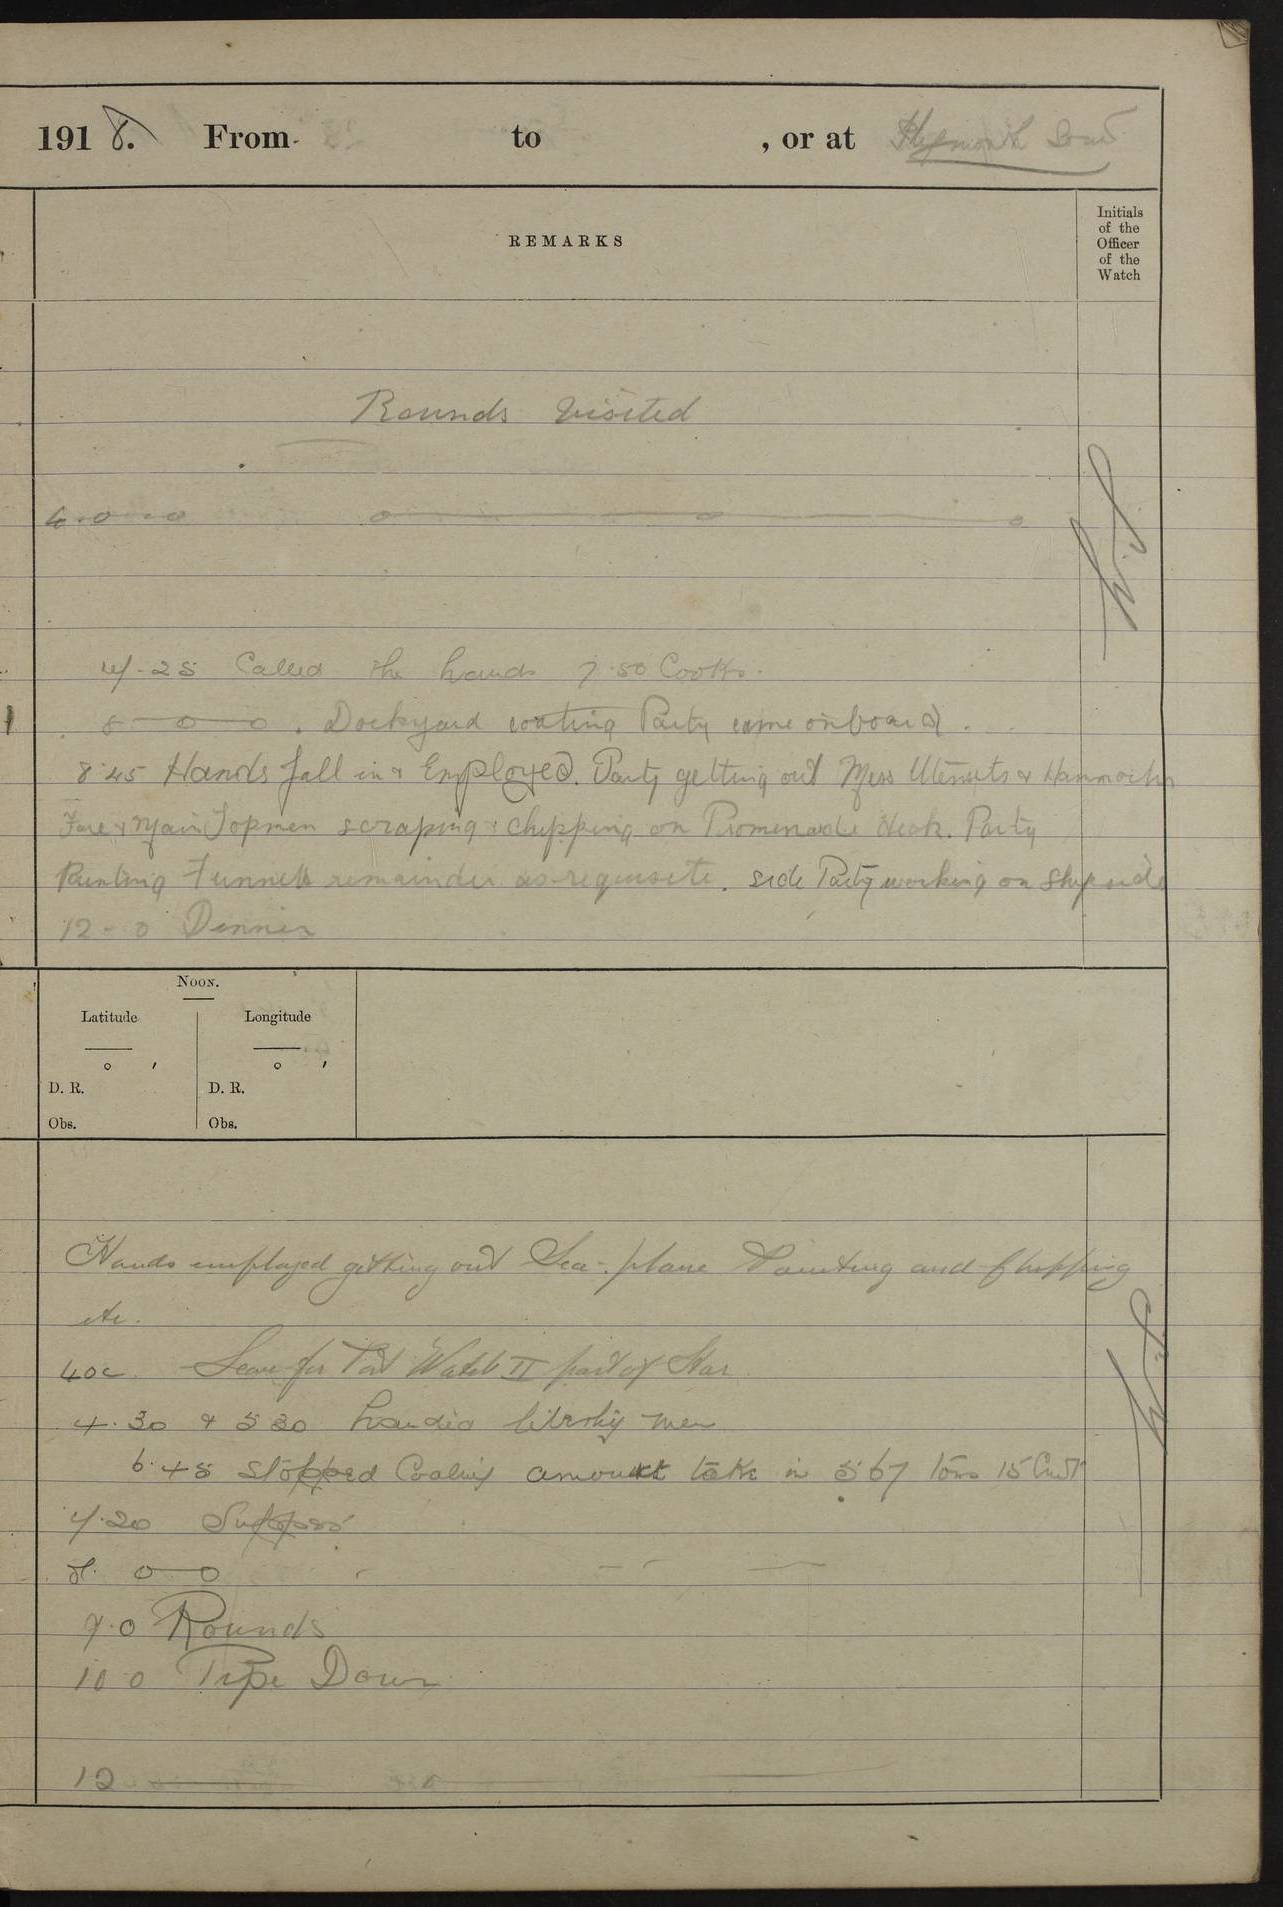 1918. From to , or at Plymouth Sound
REMARKS
Initials
of the
Officer
of the
Watch
Rounds visited
4.0
7.25 Called the hands 7.50 Cooks.
8 Dockyard coaling Party came onboard.
8.45 Hands fall in & Employed. Party getting out Mess Utensils & Hammocks
Fore & Main Topmen scraping & chipping on Promenade deck. Party
Painting Funnels remainder as requisite. Side Party working on Ship side
12-0 Dinner
NOON.
Latitude Longitude
° ′ ° ′
D. R. D. R.
Obs. Obs.
Hands employed getting out Sea-plane Painting and Chipping
etc.
4.0 Leave for Port Watch II part of Star
4.30 & 5 30 Landed liberty men
6.45 Stopped Coaling amount take in 567 tons 15 Cwt
7.20 Suppers
8.
9.0 Rounds
10 0 Pipe Down
12